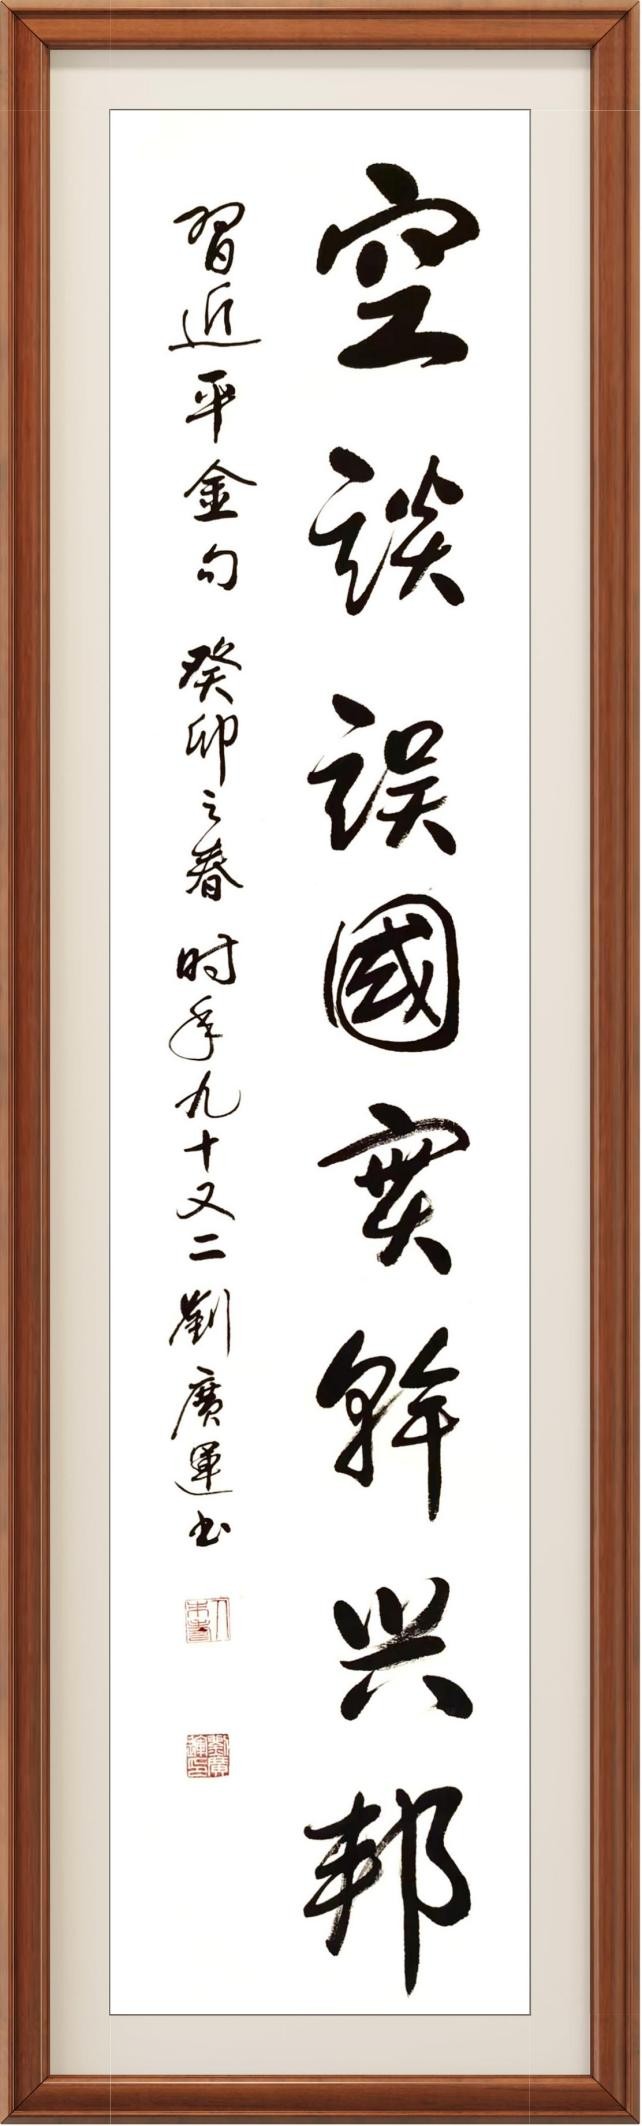 空談誤國實幹兴邦
習近平金句 癸卯之春 时年九十又二 劉廣運书